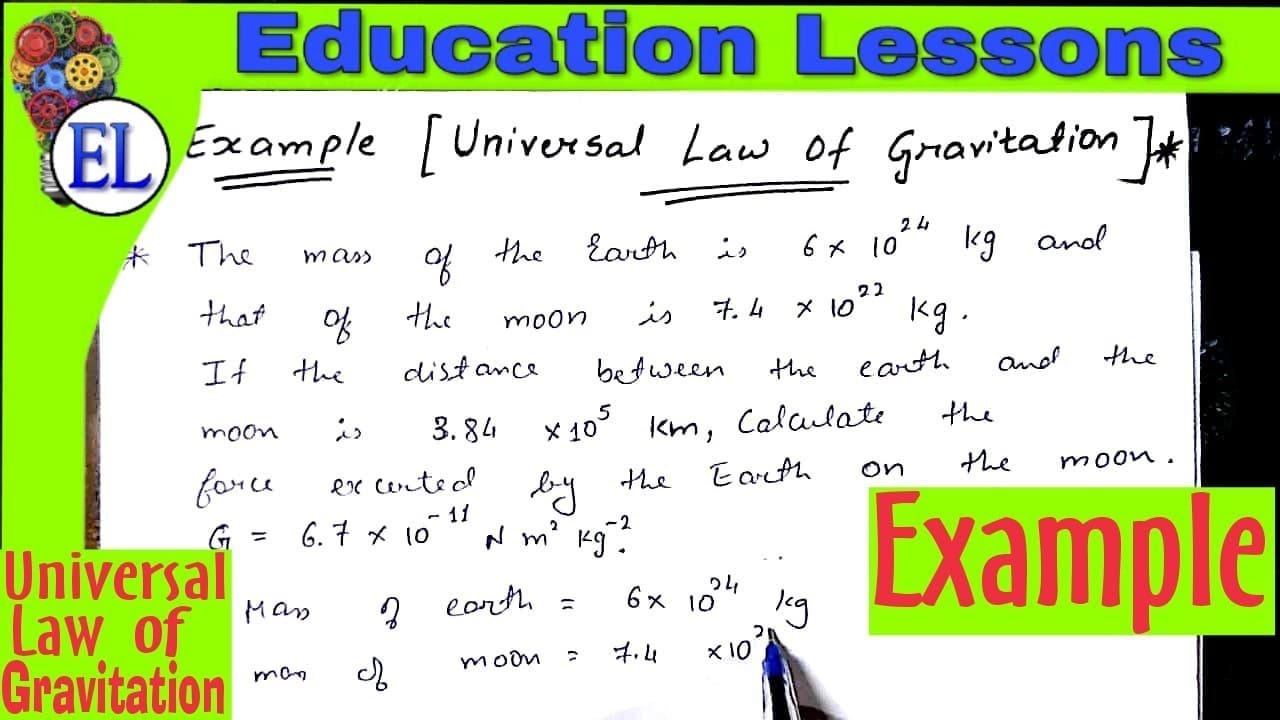 Education Lessons
EL
Example [Universal Law of Gravitation]*
* The mass of the Earth is 6 x 10²⁴ kg and
that of the moon is 7.4 x 10²² kg.
If the distance between the earth and the
moon is 3.84 x 10⁵ km, Calculate the
force excerted by the Earth on the moon.
G = 6.7 x 10⁻¹¹ N m² kg⁻².
Mass of earth = 6x 10²⁴ kg
mass of moon = 7.4 x10²
Example
Universal
Law of
Gravitation